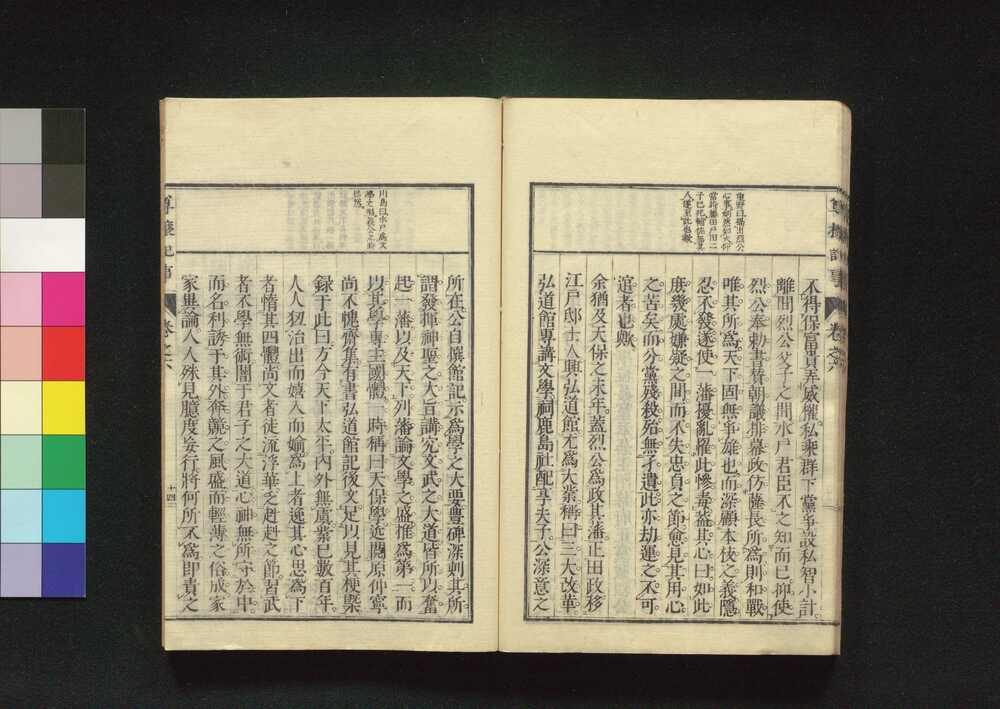 不得保富貴弄威權私樂群下黨爭設私智小計
離間烈公父子之間水戶君臣不之知而已抑使
烈公奉勅書賛朝議排幕政仿薩長所爲則和戰
唯其所爲天下固無爭雄也而深顧本枝之義隱
忍不發遂使一藩擾亂罹此慘毒蓋其心曰如此
庶幾處嫌疑之間而不失忠貞之節愈見其用心
之苦矣而分黨殘殺殆無孑遺此亦劫運之不可
逭者悲歟
余猶及天保之末年蓋烈公爲政其藩正田政移
江戶邸士人興弘道館尤爲大業稱曰三大改革
弘道館專講文學祠鹿島社配享夫子公深意之
川島曰水戶爲文
所在公自撰館記示爲學之大要豐碑深刻其所
謂發揮神聖之大旨講究文武之大道皆所以奮
起一藩以及天下列藩論文學之盛推爲第一而
以其學專主國體一時稱曰天保學近閱原仲寧
尚不愧齋集有書弘道館記後文足以見其梗槩
錄于此曰方今天下太平內外無虞業已數百年
人人狃治出而嬉入而媮爲上者逸其心思爲下
者惰其四體尚文者徒流浮華之尚赳赳之節習武
者不學無術闇于君子之大道心神無所守於中
而名利誘于其外奔競之風盛而輕薄之俗成家
家異論人人殊見臆度妄行將何所不爲即責之
尊攘記事
卷之六
十四